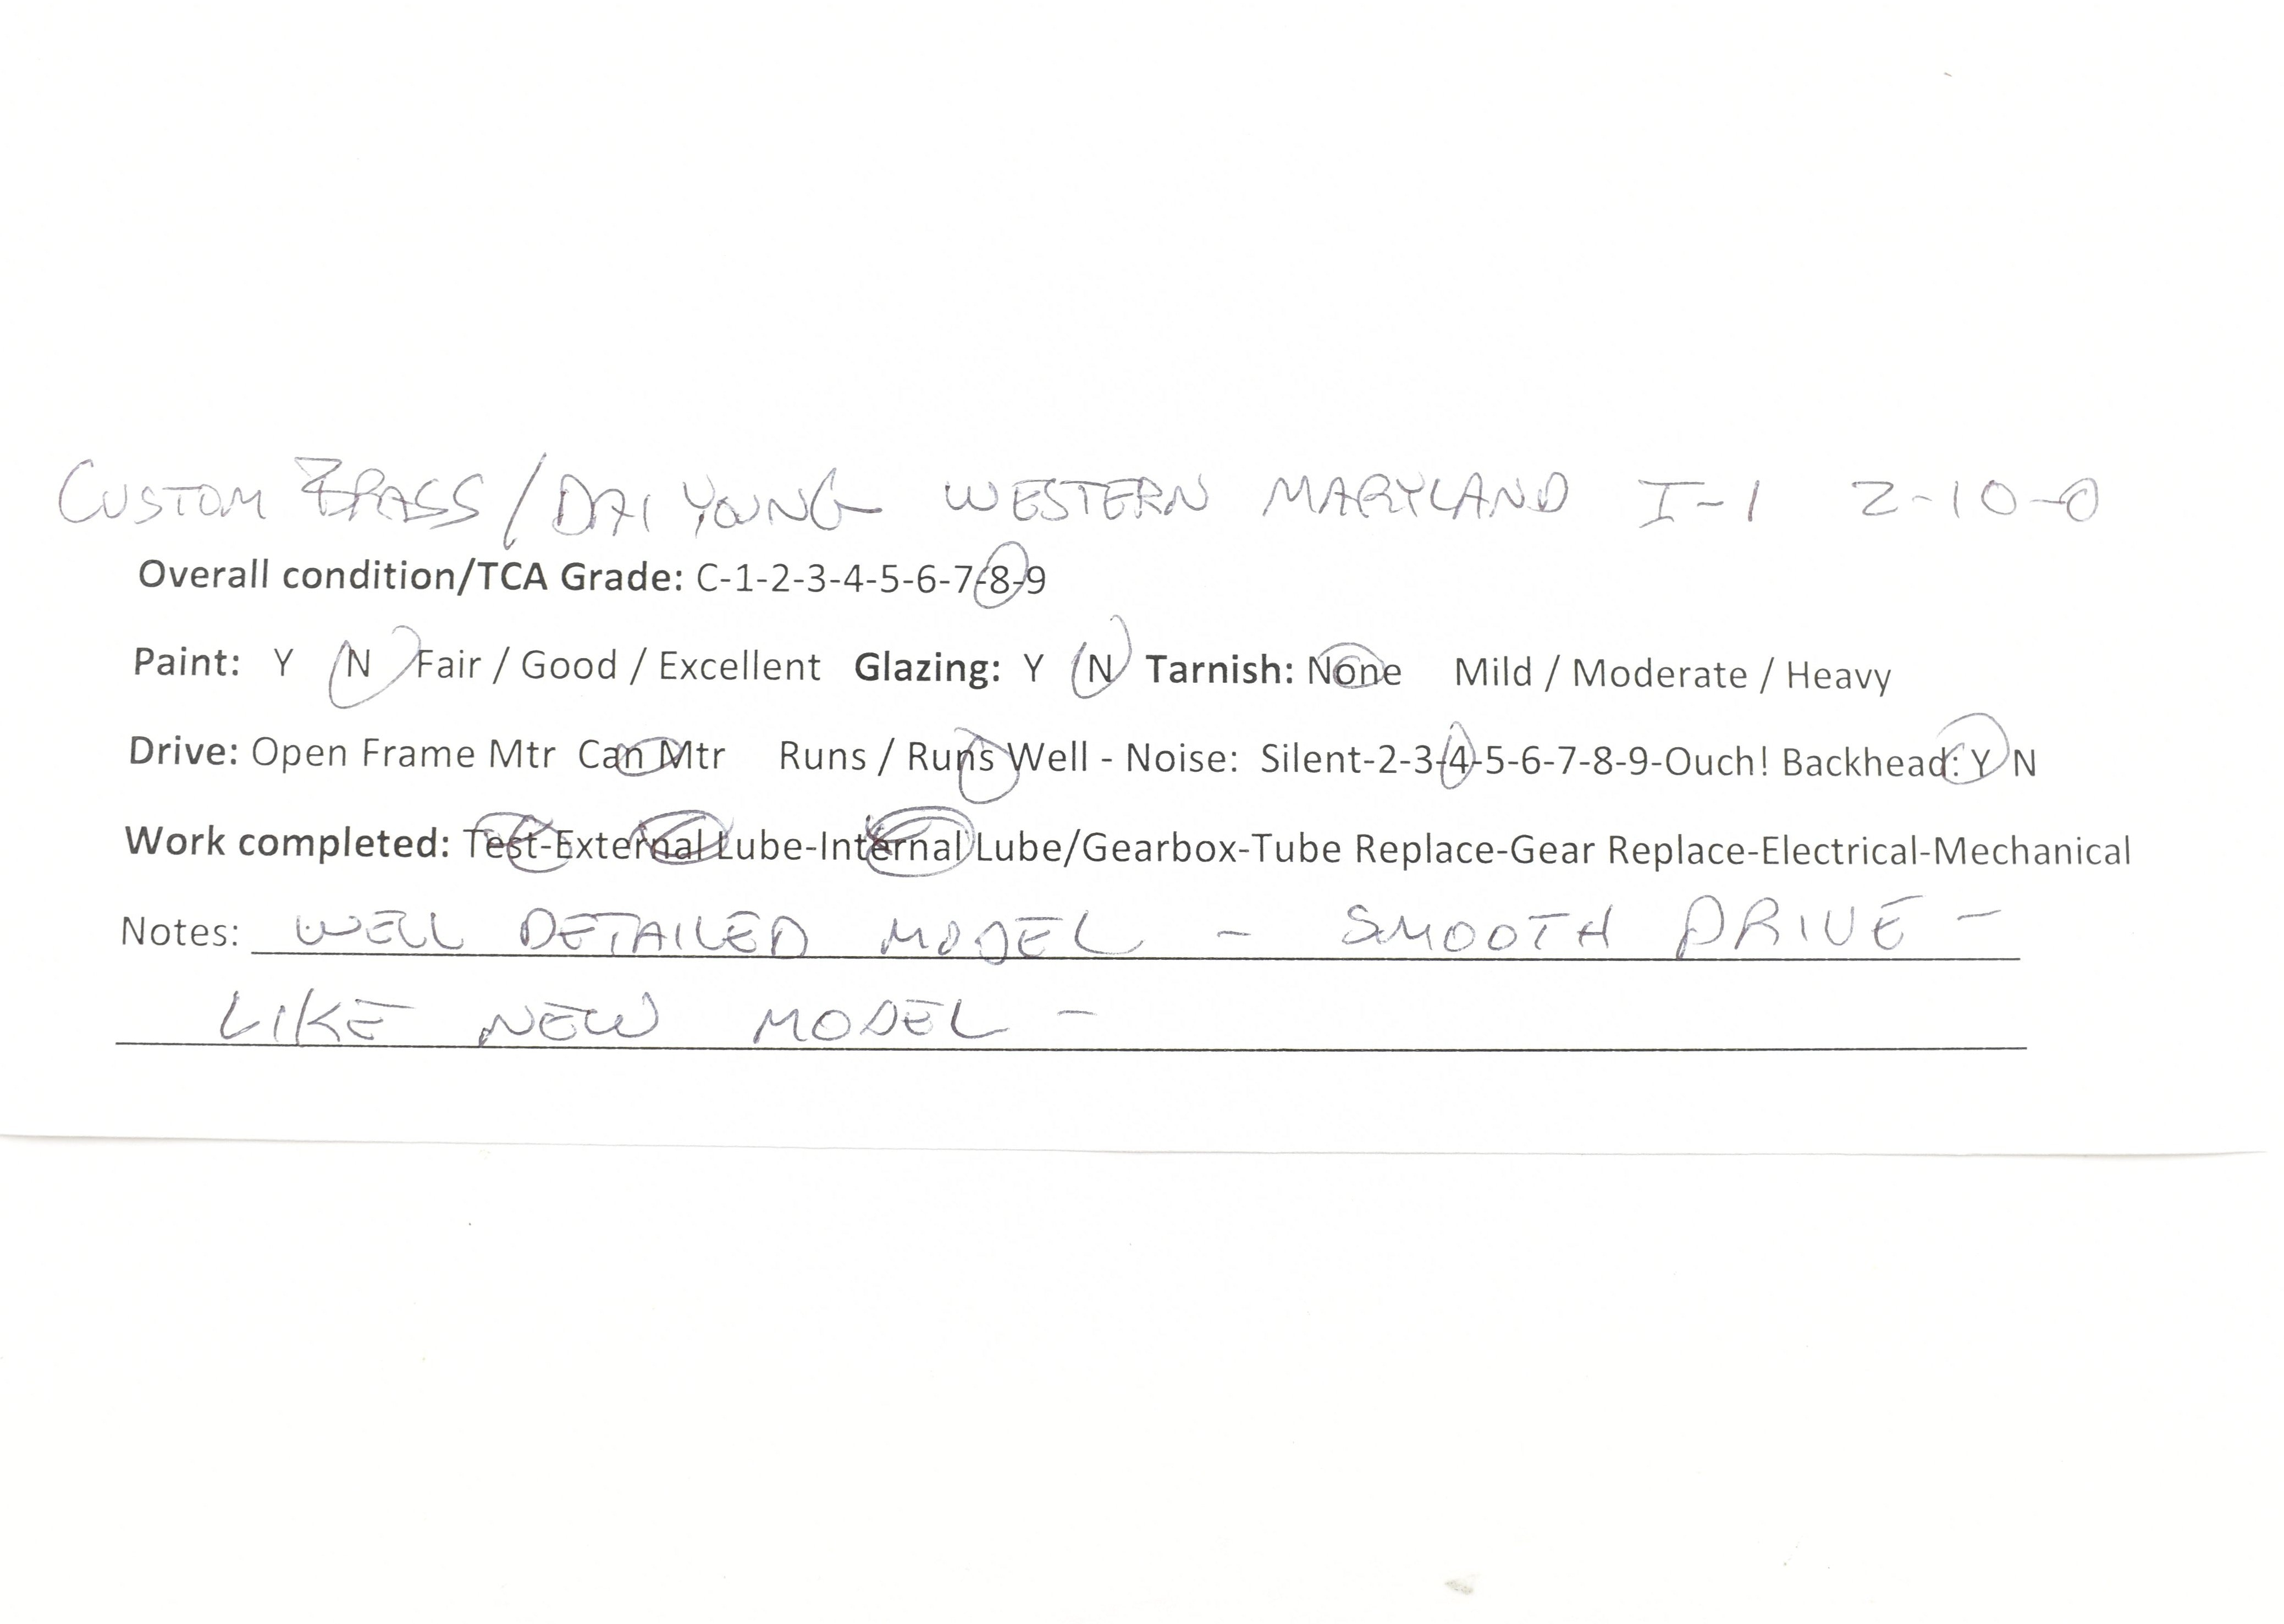 CUSTOM BRASS/DAI YOUNG WESTERN MARYLAND I-1 2-10-0
Overall condition/TCA Grade: C-1-2-3-4-5-6-7-8-9
Paint: Y N Fair / Good / Excellent Glazing: Y N Tarnish: None Mild / Moderate / Heavy
Drive: Open Frame Mtr Can Mtr Runs / Runs Well - Noise: Silent-2-3-4-5-6-7-8-9-Ouch! Backhead: Y N
Work completed: Test-External Lube-Internal Lube/Gearbox-Tube Replace-Gear Replace-Electrical-Mechanical
Notes: WELL DETAILED MODEL - SMOOTH DRIVE -
LIKE NEW MODEL -